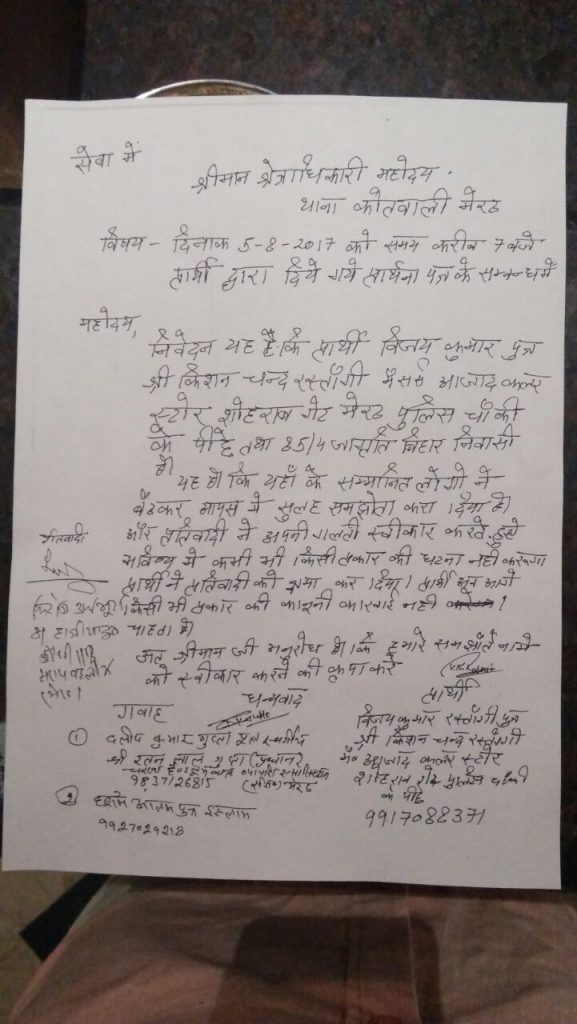 सेवा में
श्रीमान क्षेत्राधिकारी महोदय.
थाना कोतवाली मेरठ
विषय - दिनाक 5-8-2017 को समय करीब 7 बजे
प्रार्थी द्वारा दिये गये प्रार्थना पत्र के सम्बन्ध में
महोदय,
निवेदन यह है कि प्रार्थी विजय कुमार पुत्र
श्री किशन चन्द रस्तौगी मैसर्स आजाद कलर
स्टोर शोहराब गेट मेरठ पुलिस चौकी
के पीछे तथा 85/4 जागृति विहार निवासी
है।
यह है कि यहाँ के सम्मानित लोगो ने
बैठकर आपस में सुलह समझोता करा दिया है।
और प्रतिवादी ने अपनी गलती स्वीकार करते हुये
भविष्य में कभी भी किसी प्रकार की घटना नही करेगा
प्रार्थी ने प्रतिवादी को क्षमा कर दिया। प्रार्थी अब आगे
किसी भी प्रकार की कानूनी कारवाई नही
चाहता है।
अतः श्रीमान जी अनुरोध है। कि हमारे समझौते नामे
को स्वीकार करने की कृपा करे
धन्यवाद
प्रतिवादी
गवाह
① दलीप कुमार गुप्ता पुत्र स्वर्गीय
श्री रतन लाल गुप्ता (प्रधान)
9837126815 मेरठ
② आलम पुत्र इस्लाम
9927029218
प्रार्थी
विजय कुमार रस्तौगी पुत्र
श्री किशन चन्द रस्तौगी
मै० आजाद कलर स्टोर
शोहराब गेट पुलिस चौकी
के पीछे
9917088371